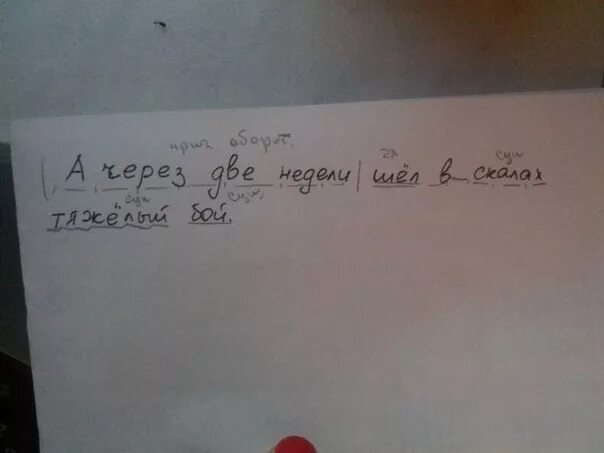 прич оборот.
| А через две недели | шёл в скалах
гл сущ
сущ сущ.
тяжёлый бой.